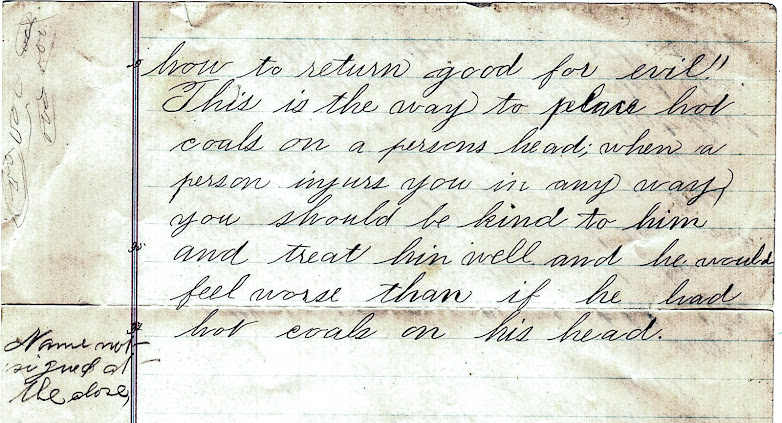 how to return good for evil"
This is the way to place hot
coals on a persons head; when a
person injurs you in any way
you should be kind to him
and treat him well and he would
feel worse than if he had
hot coals on his head.
Name not
signed at
the close,